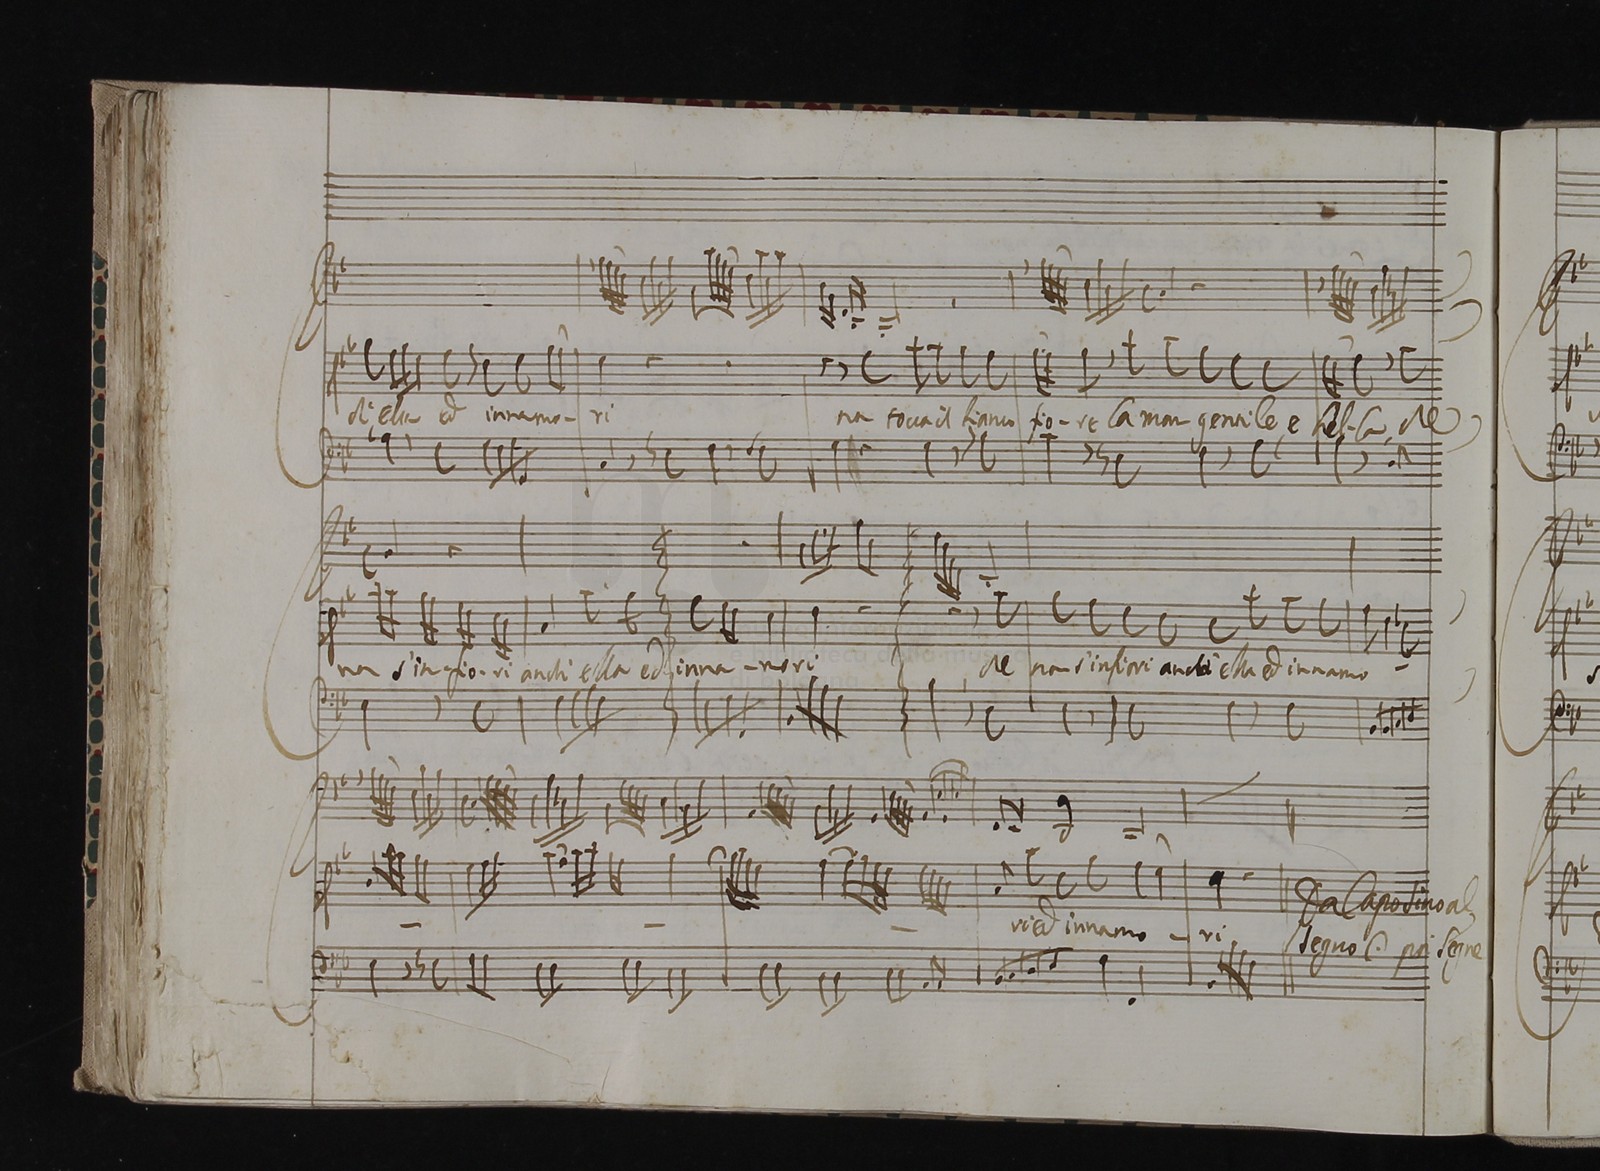 di ella ed innamo-ri na tocca il fianco fio-re la man gentile e bel-la, de
na s'in-fio-ri anch' ella ed inna-mori de na s'infiori anch' ella ed innamo -
- - - ri ed innamo - ri
Da Capo sino al
segno poi segue